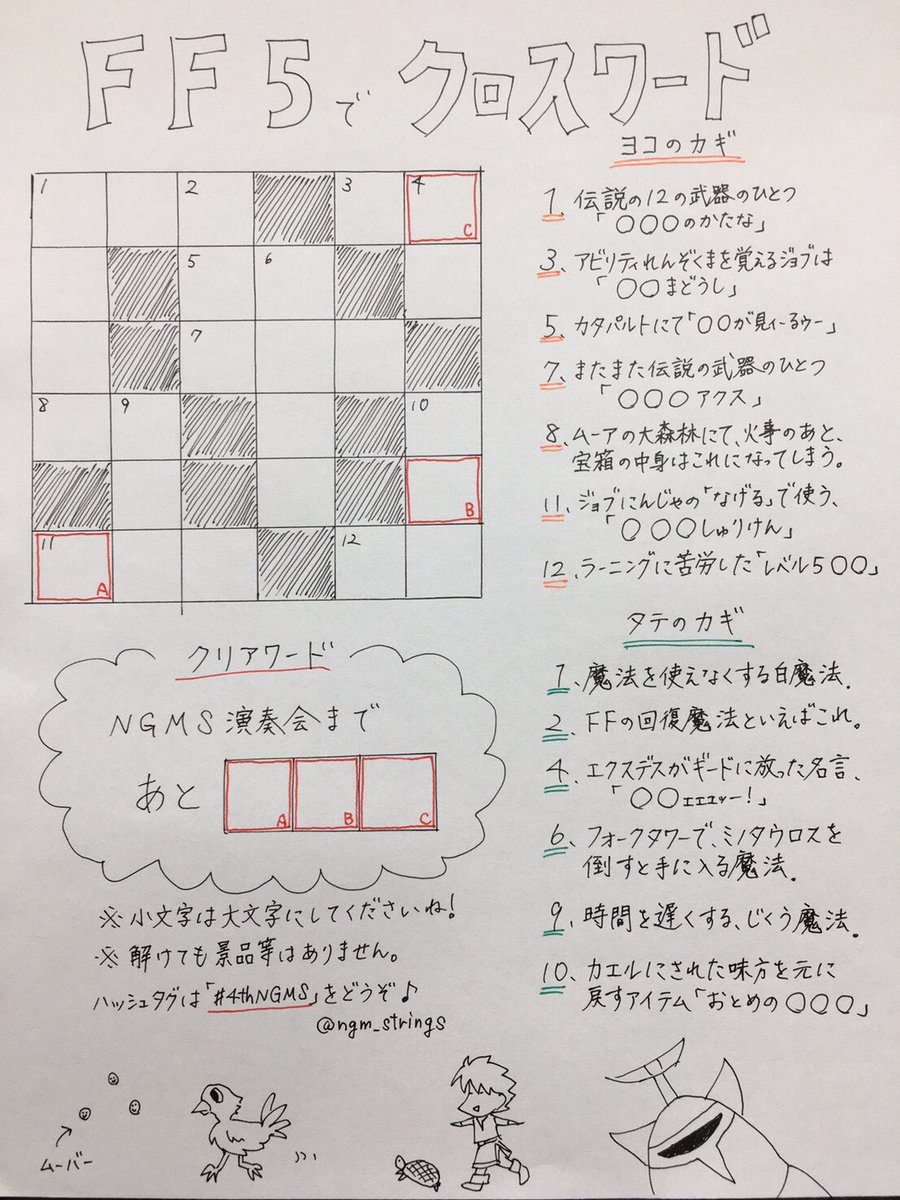 FF5でクロスワード
1 2 3 4
C
5 6
7
8 9 10
B
11 12
A
ヨコのカギ
1、伝説の12の武器のひとつ
「○○○のかたな」
3、アビリティれんぞくまを覚えるジョブは
「○○まどうし」
5、カタパルトにて「○○が見ぃーるゥー」
7、またまた伝説の武器のひとつ
「○○○アクス」
8、ムーアの大森林にて、火事のあと、
宝箱の中身はこれになってしまう。
11、ジョブにんじゃの「なげる」で使う、
「○○○しゅりけん」
12、ラーニングに苦労した「レベル5○○」
タテのカギ
1、魔法を使えなくする白魔法.
2、FFの回復魔法といえばこれ。
4、エクスデスがギードに放った名言、
「○○ェェェッー!」
6、フォークタワーで、ミノタウロスを
倒すと手に入る魔法.
9、時間を遅くする、じくう魔法.
10、カエルにされた味方を元に
戻すアイテム「おとめの○○○」
クリアワード
NGMS演奏会まで
あと A B C
※小文字は大文字にしてくださいね!
※解けても景品等はありません。
ハッシュタグは「#4thNGMS」をどうぞ♪
@ngm_strings
ムーバー